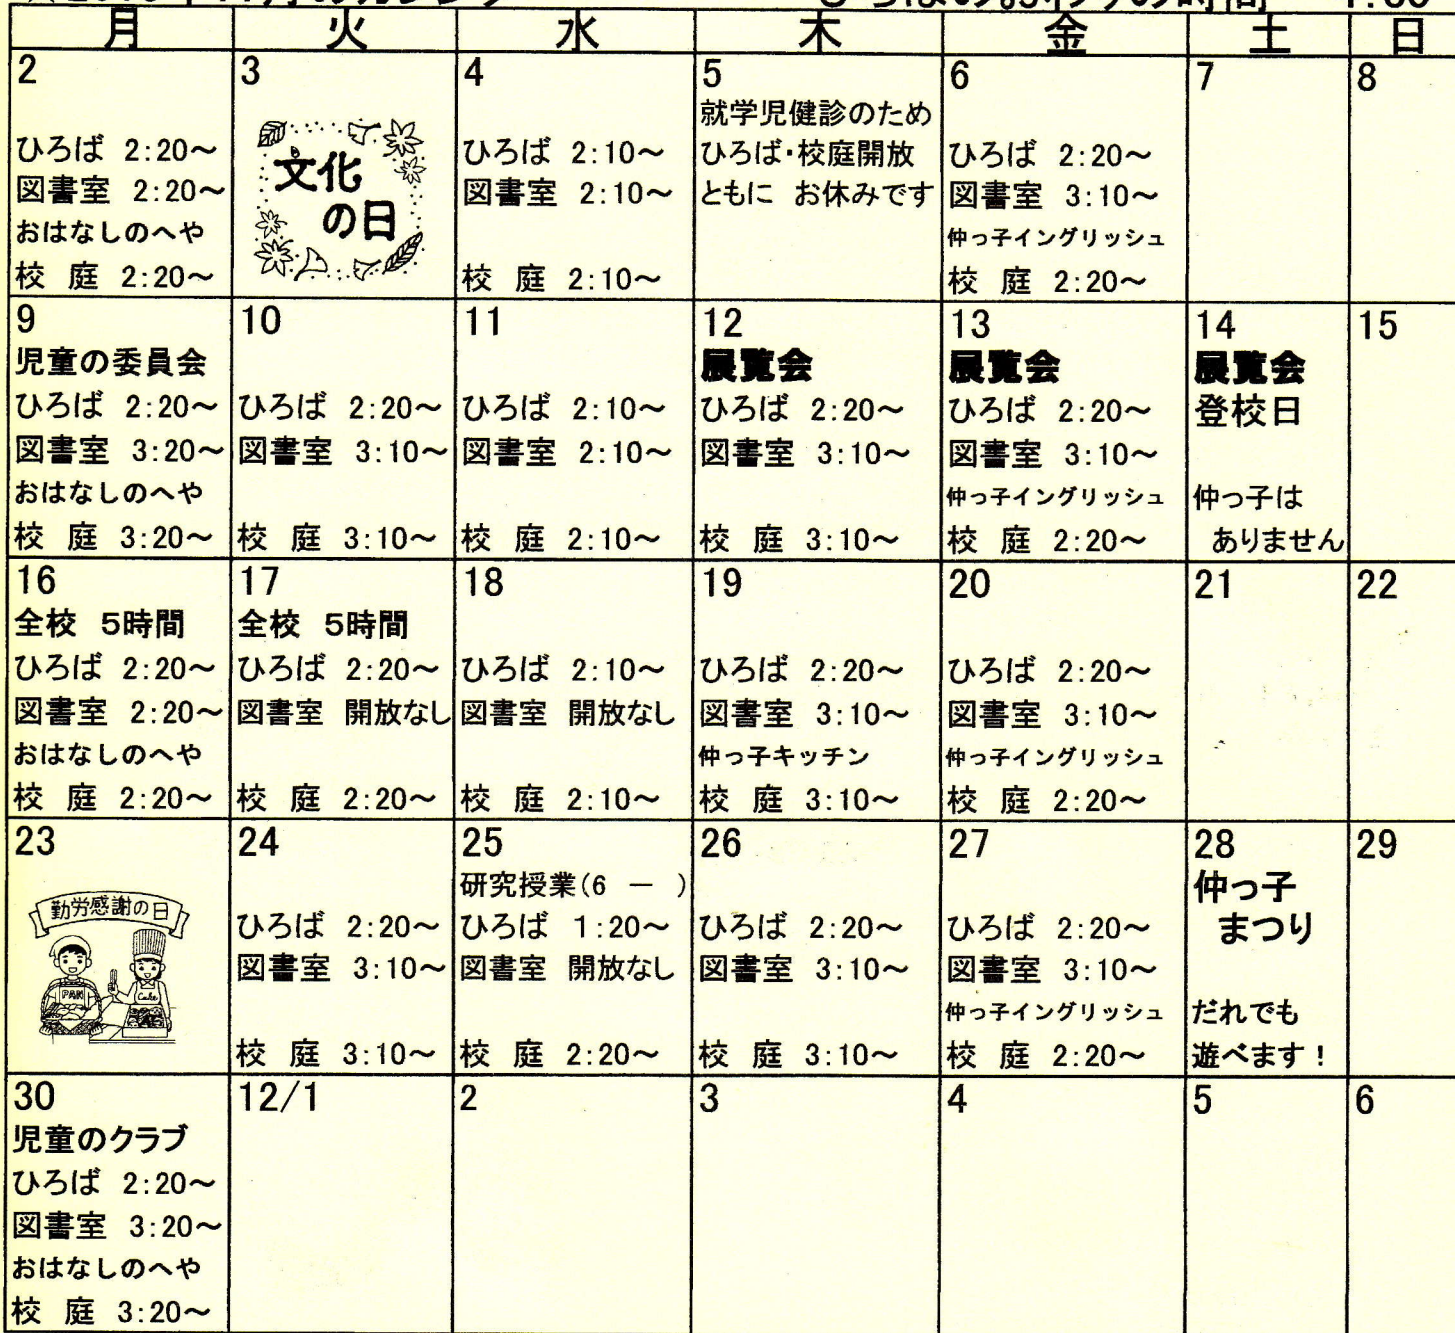 月 火 水 木 金 土 日
2
ひろば 2:20～
図書室 2:20～
おはなしのへや
校 庭 2:20～
3
文化
の日
4
ひろば 2:10～
図書室 2:10～
校 庭 2:10～
5
就学児健診のため
ひろば・校庭開放
ともに お休みです
6
ひろば 2:20～
図書室 3:10～
仲っ子イングリッシュ
校 庭 2:20～
7
8
9
児童の委員会
ひろば 2:20～
図書室 3:20～
おはなしのへや
校 庭 3:20～
10
ひろば 2:20～
図書室 3:10～
校 庭 3:10～
11
ひろば 2:10～
図書室 2:10～
校 庭 2:10～
12
展覧会
ひろば 2:20～
図書室 3:10～
校 庭 3:10～
13
展覧会
ひろば 2:20～
図書室 3:10～
仲っ子イングリッシュ
校 庭 2:20～
14
展覧会
登校日
仲っ子は
ありません
15
16
全校 5時間
ひろば 2:20～
図書室 2:20～
おはなしのへや
校 庭 2:20～
17
全校 5時間
ひろば 2:20～
図書室 開放なし
校 庭 2:20～
18
ひろば 2:10～
図書室 開放なし
校 庭 2:10～
19
ひろば 2:20～
図書室 3:10～
仲っ子キッチン
校 庭 3:10～
20
ひろば 2:20～
図書室 3:10～
仲っ子イングリッシュ
校 庭 2:20～
21
22
23
勤労感謝の日
PAN
Cake
24
ひろば 2:20～
図書室 3:10～
校 庭 3:10～
25
研究授業(6 － )
ひろば 1:20～
図書室 開放なし
校 庭 2:20～
26
ひろば 2:20～
図書室 3:10～
校 庭 3:10～
27
ひろば 2:20～
図書室 3:10～
仲っ子イングリッシュ
校 庭 2:20～
28
仲っ子
まつり
だれでも
遊べます！
29
30
児童のクラブ
ひろば 2:20～
図書室 3:20～
おはなしのへや
校 庭 3:20～
12/1
2
3
4
5
6